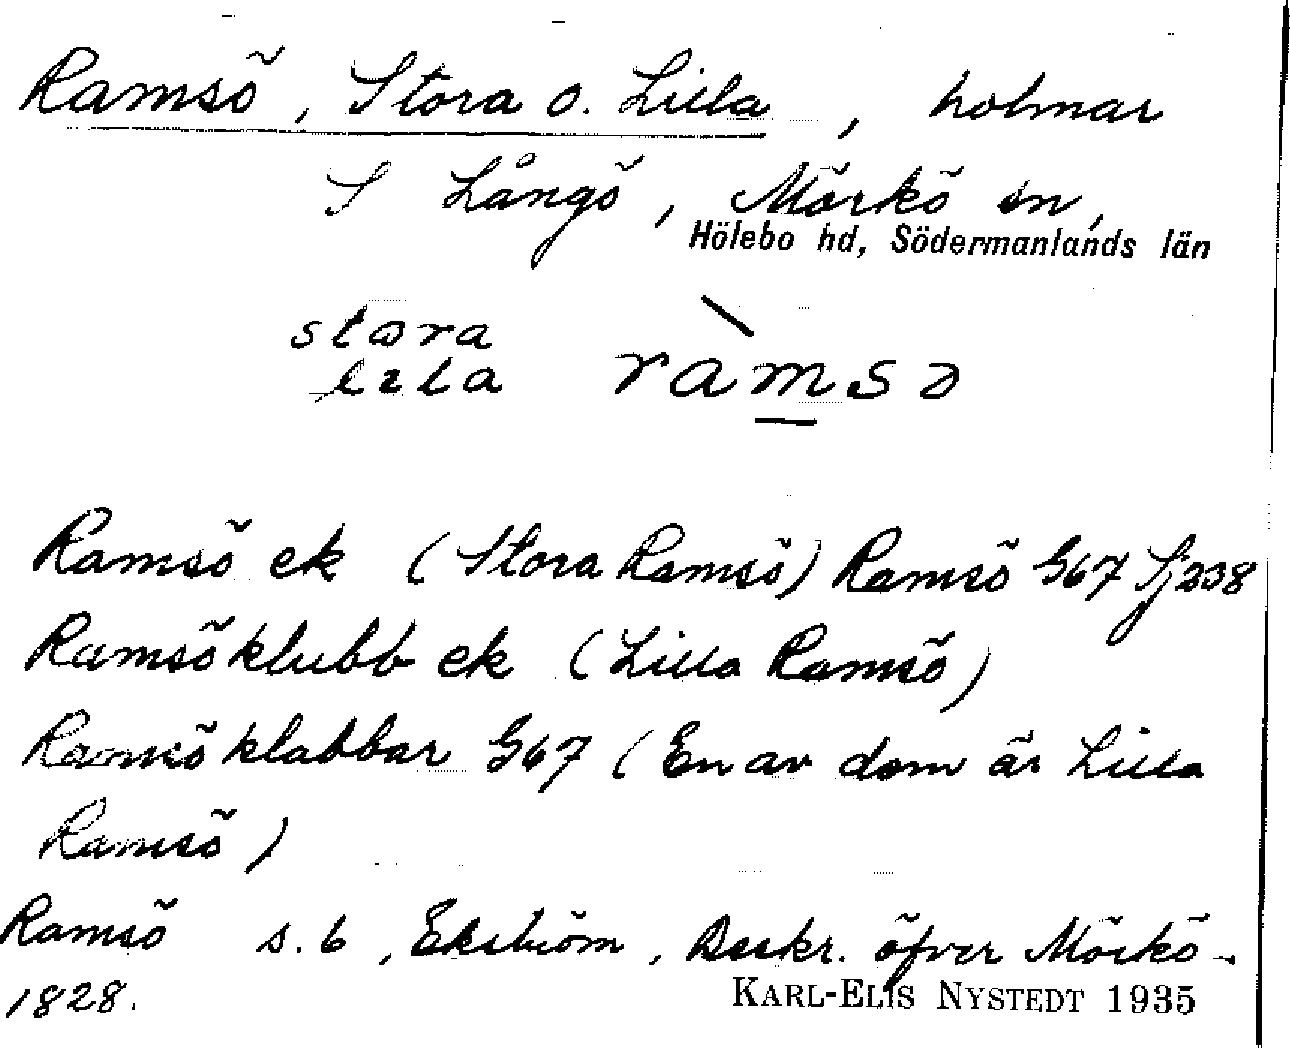 Ramsö, Stora o. Lilla, holmar
S Långö, Mörkö sn,
Hölebo hd, Södermanlands län
stora
lila ràmsə
Ramsö ek (Stora Ramsö) Ramsö G67 Sj238
Ramsöklubb ek (Lilla Ramsö)
Ramsöklabbar G67 (En av dem är Lilla
Ramsö)
Ramsö s. 6, Ekström, Beskr. öfver Mörkö.
1828.
KARL-ELIS NYSTEDT 1935